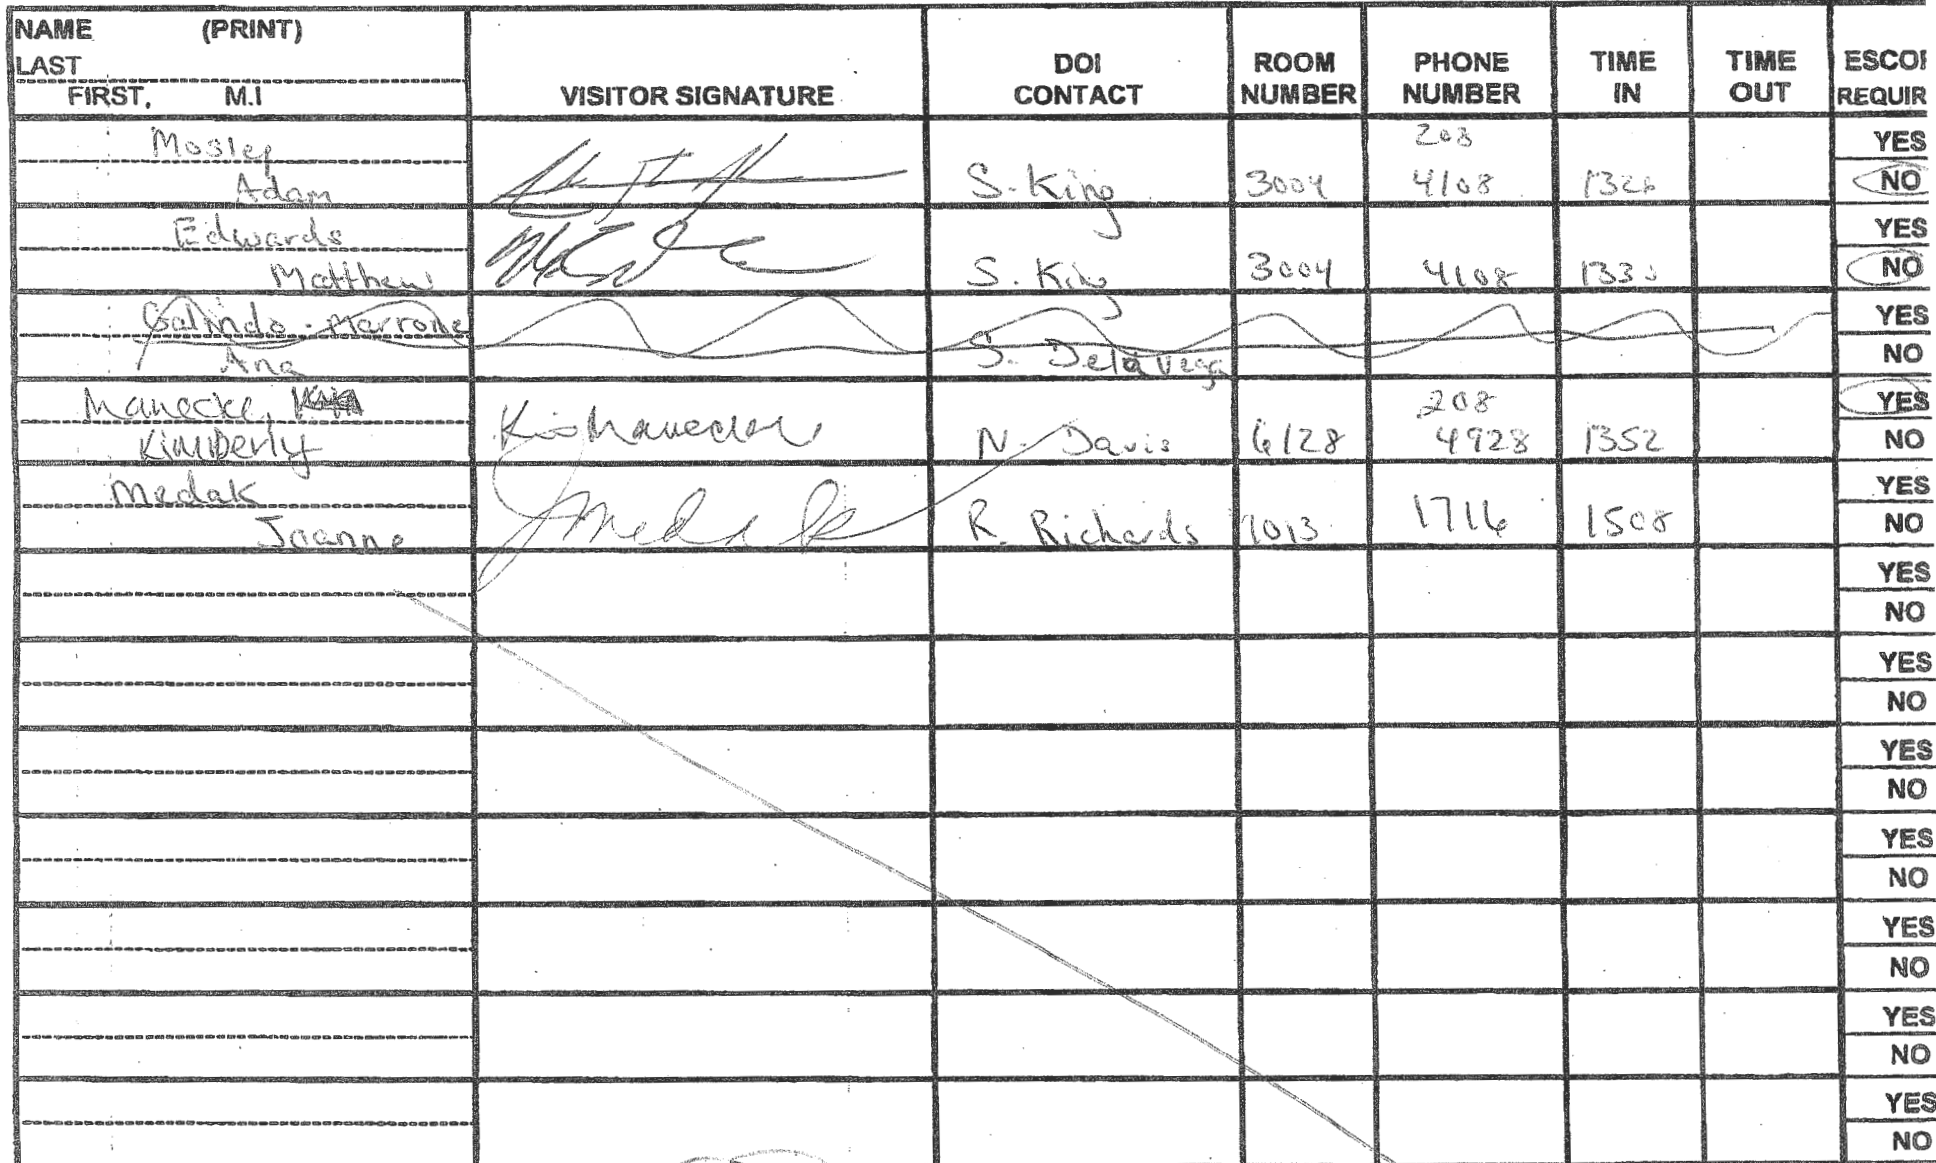 NAME (PRINT)
LAST
FIRST, M.I
VISITOR SIGNATURE
DOI
CONTACT
ROOM
NUMBER
PHONE
NUMBER
TIME
IN
TIME
OUT
ESCOR
REQUIR
Mosley
Adam
S. King
3004
208
4108
1326
YES
NO
Edwards
Matthew
S. King
3004
4108
YES
NO
Galindo-Marrone
Ana
S. Dela Vega
YES
NO
Manecke,
Kimberly
N. Davis
6128
208
4928
1352
YES
NO
Medak
Joanne
J Medak
R. Richards
7013
1716
1508
YES
NO
YES
NO
YES
NO
YES
NO
YES
NO
YES
NO
YES
NO
YES
NO